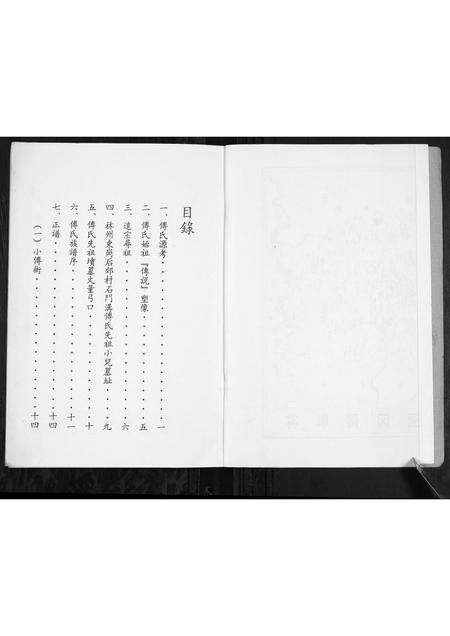 目錄
一、傅氏源考・・・・・・・・・・・・・・・一
二、傅氏始祖『傅説』塑像・・・・・・・・・五
三、追宗尋祖・・・・・・・・・・・・・・・六
四、林州東崗后郊村石門溝傅氏先祖小兒墓址・・・九
五、傅氏先祖墳墓丈量弓口・・・・・・・・・十
六、傅氏族譜序・・・・・・・・・・・・・十一
七、正譜・・・・・・・・・・・・・・・・十四
(一)小傅街・・・・・・・・・・・・・・十四